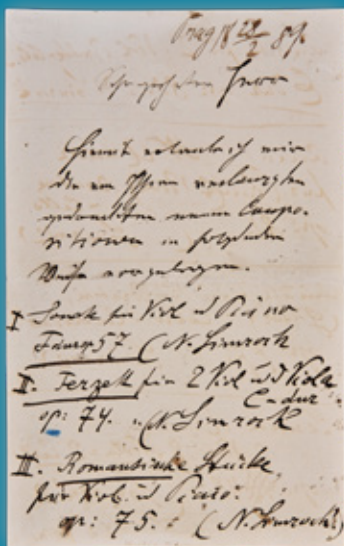 Prag 18 28/2 89.
Sehr geehrter Herr
Hiemit erlaube ich mir
die von Ihnen verlangten
gedruckten neuen Compo-
sitionen in folgender
Weise vorzulegen.
I Sonate für Viol u Piano
F dur op 57. (N. Simrock
II. Terzett für 2 Viol u 1 Viola
C-dur
op: 74. (N. Simrock
III. Romantische Stücke
für Viol. u Piano.
op: 75. (N. Simrock)